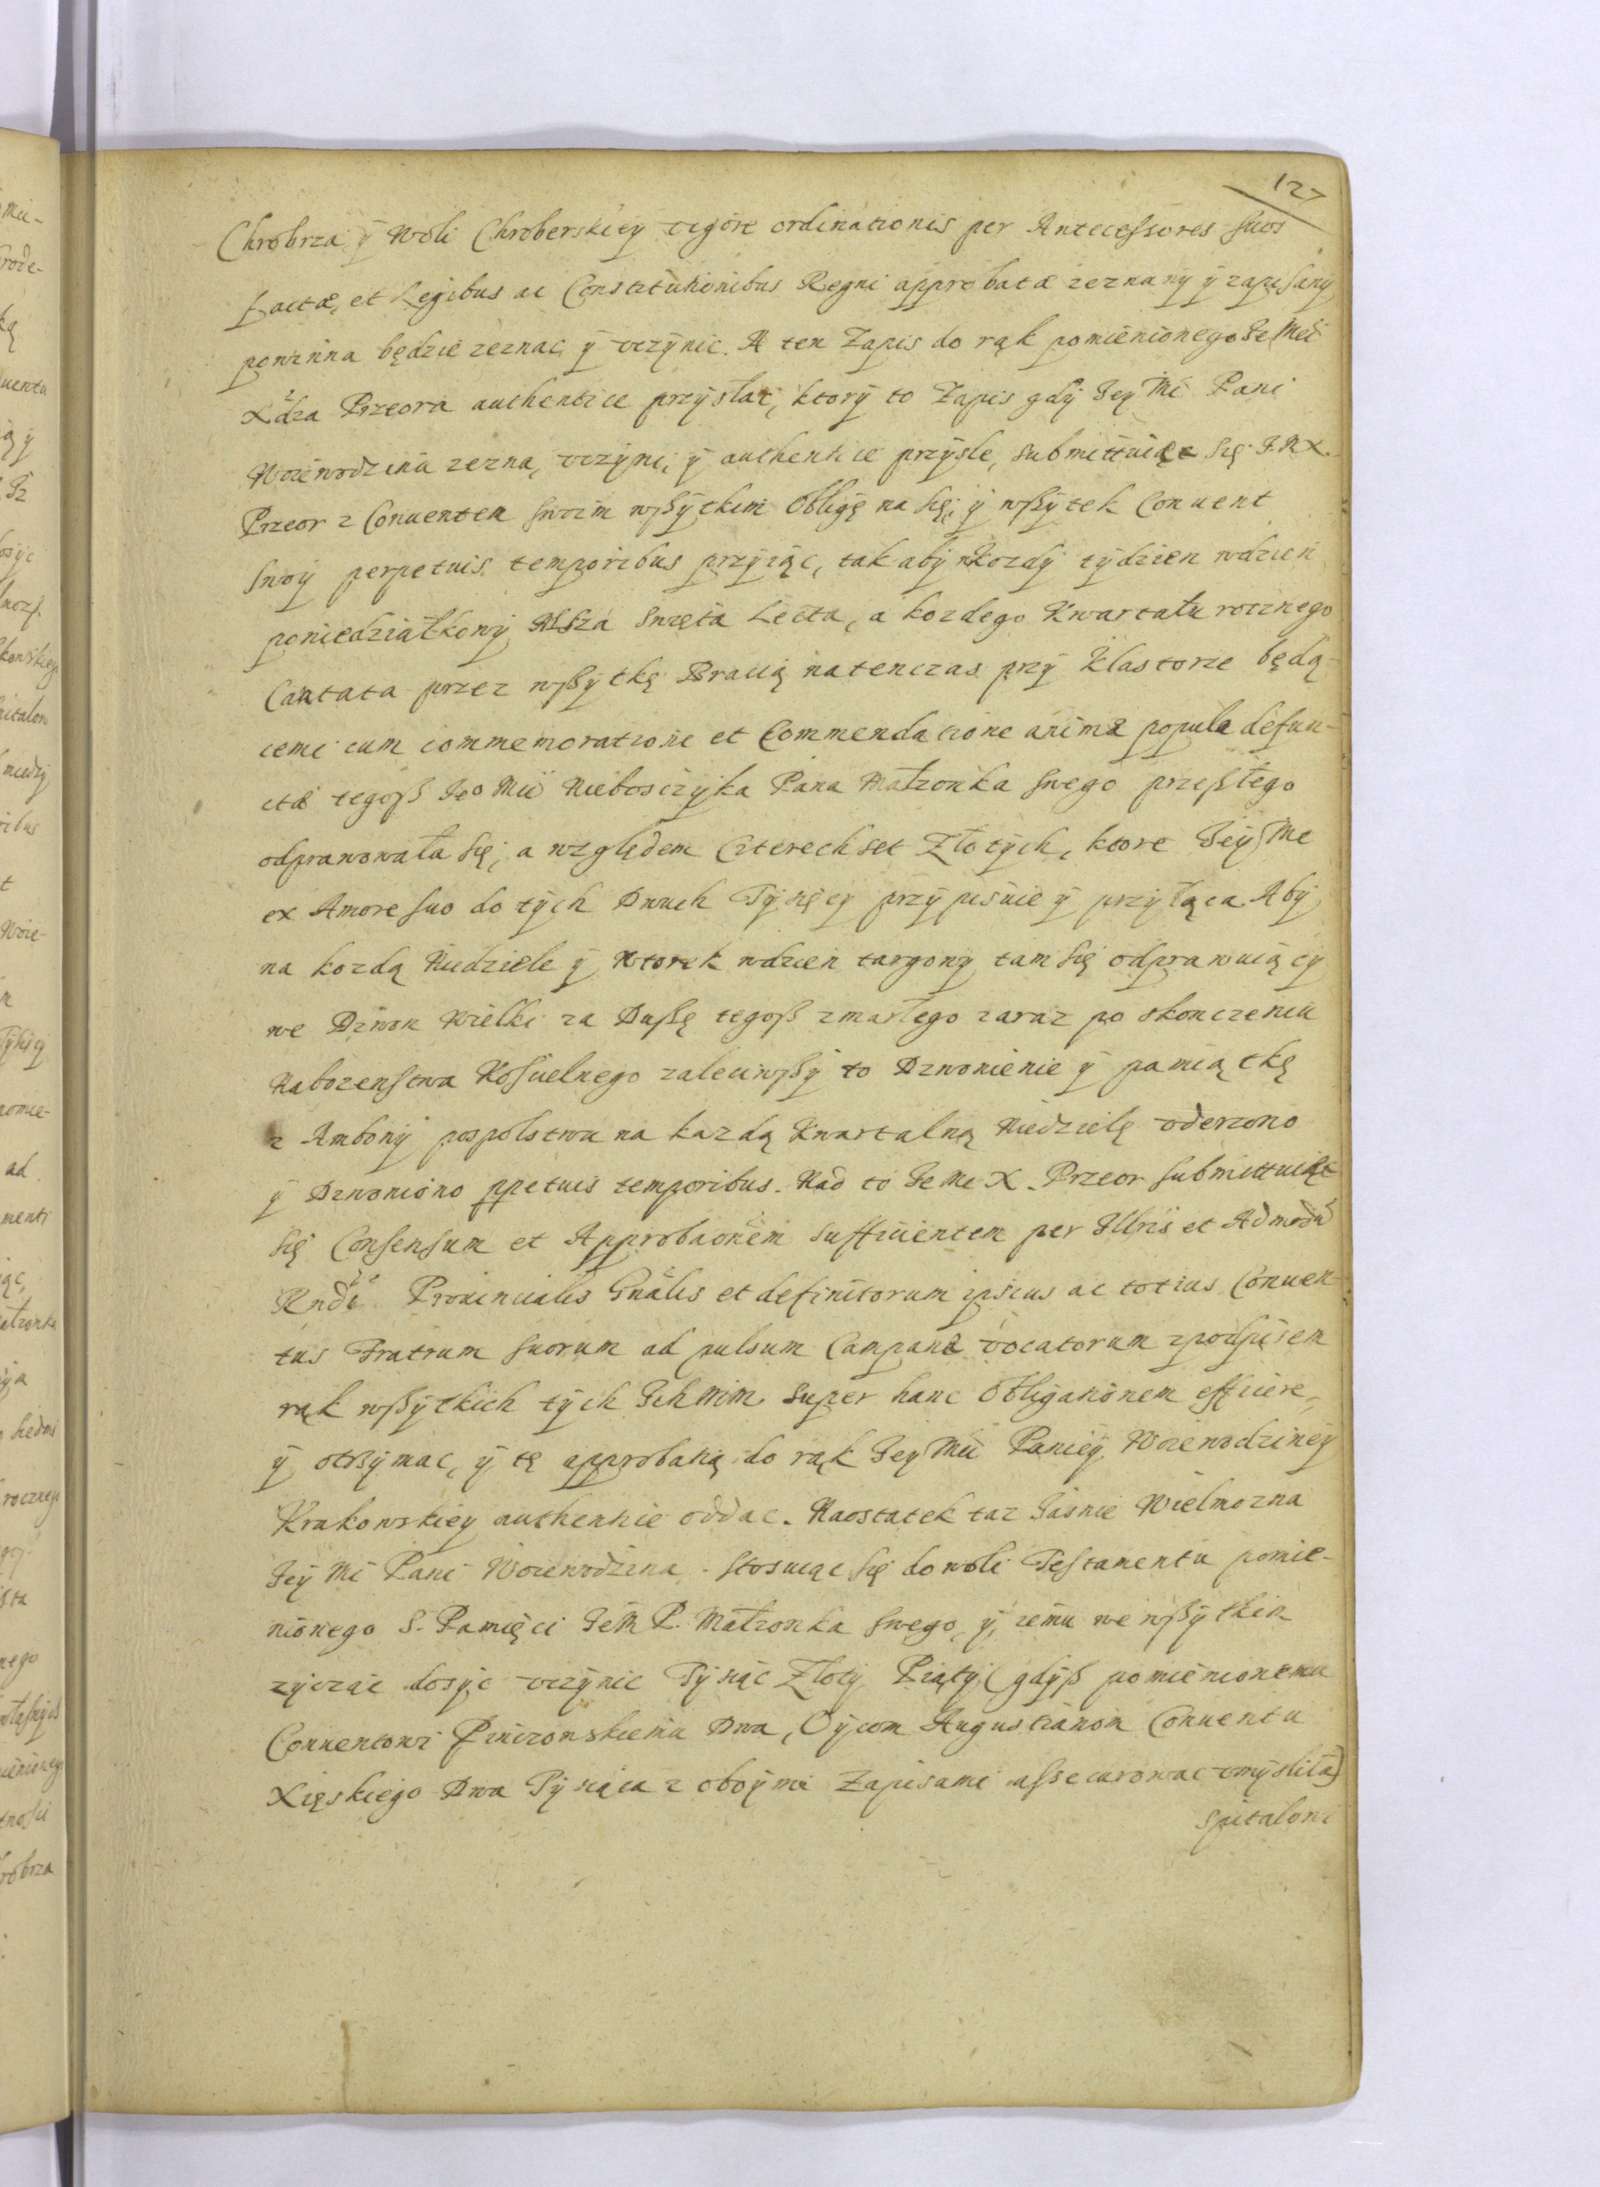 127
Chrobrza ÿ Woli Chroberskiey vigore ordinationis per Antecessores suos
factæ, et Legibus ac Constitutionibus Regni approbatæ zeznany ÿ zapisany
powinna będzie zeznac ÿ vczÿnic. A ten Zapis do rąk pomienionego Je Mci
Xdza Przeora authentice przÿsłac, ktorÿ to Zapis gdÿ Jeÿ Mc Pani
Woiewodzina zezna, vczÿni, ÿ authentice przÿsle, submittuiąc się J.M.X.
Przeor z Conuentem swoim wßÿtkim Obligę na się, ÿ wßÿtek Conuent
swoÿ perpetuis temporibus przÿiąc, tak abÿ wkozdÿ tÿdzien wdzien
poniedziałkowÿ Msza Swięta Lecta, a kozdego Kwartału rocznego
Cantata przez wßÿtkę Bracią natenczas przÿ Klastorze będą-
cemi cum commemoratione et Commendatione animæ populo defun-
ctæ tegoß Jeo Mci Nieboszczÿka Pana Małzonka swego przeßłego
odprawowała się, a względem Czterechset Złotÿch, ktore Jeÿ Mc
ex Amore suo do tÿch Dwuch Tÿsięcy przÿpisuie ÿ przÿłąca Abÿ
na kozdą Niedziele ÿ Wtorek wdzien targowÿ tam się odprawuiącÿ
we Dzwon Wielki za Dußę tegoß zmarłego zaraz po skonczeniu
Nabozenstwa Koscielnego zaleciwßÿ to Dzwonienie ÿ pamiątkę
z Ambonÿ pospolstwu na kazdą Kwartalną Niedzielę vderzono
ÿ Dzwoniono ppetuis temporibus. Nad to Je Mc X. Przeor submittuiąc
się Consensum et Approbaonem sufficientem per Illris et Admodu
Rndi Prouincialis Gnalis et definitorum ipsius ac totius Conuen-
tus Fratrum suorum ad pulsum Campanæ vocatorum zpodpisem
rąk wßÿtkich tÿch Ich Mciow super hanc Obligationem efficere,
ÿ otrzÿmac, ÿ tę approbatią do rąk Jeÿ Mci Panieÿ Woiewodzineÿ
Krakowskiey authentice oddac. Naostatek taz Jasnie Wielmozna
Jeÿ Mc Pani Woiewodzina stosuiąc się do woli Testamentu pomie-
nionego S. Pamięci Je M P. Małzonka swego, ÿ iemu we wßÿtkim
zÿcząc dosÿc vczÿnic Tÿsiąc Złotÿ Piątÿ (gdÿß pomienionemu
Conuentowi Pinczowskiemu Dwa, Oÿcom Augustianom Conuentu
Xięskiego Dwa Tÿsiąca z oboÿmi Zapisami assecurowac vmÿsliła)
Szpitalowi